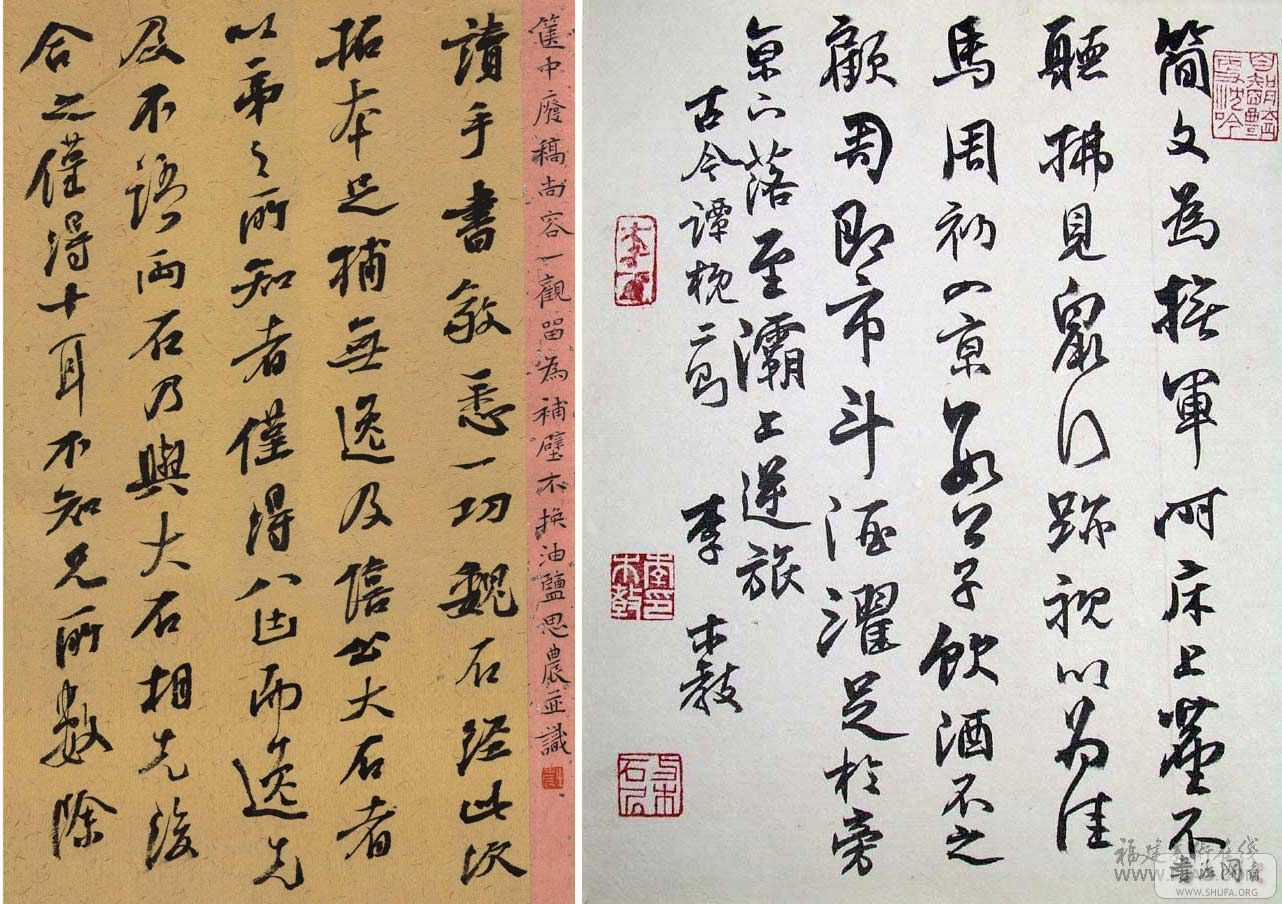 簡文為撫軍時床上塵不
聽拂見鼠行跡視以為佳
馬周初入京至公子飲酒不之
顧周即市斗酒濯足於旁
京下落至灞上逆旅
古今譚概二為
李木教
篋中廢稿尚容一觀留為補壁不換油鹽思農並識
讀手書敬悉一切魏石經此次
拓本足補無逸及僖公大石者
以弟之所知者僅得八占而逸先
及不語兩石乃與大石相先後
合之僅得十耳不知兄所數除
福建 在线
www.
书法网
WWW.SHUFA.ORG